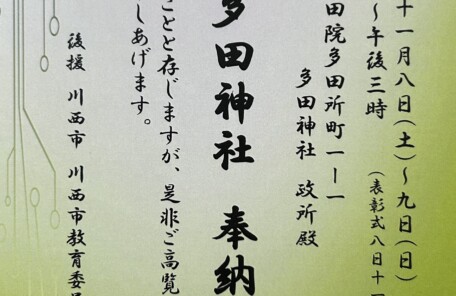 十一月八日(土)~九日(日)
~午後三時
(表彰式八日十一
田院多田所町一ー一
多田神社 政所殿
多田神社 奉納
ことと存じますが、是非ご高覧
しあげます。
後援 川西市 川西市教育委員